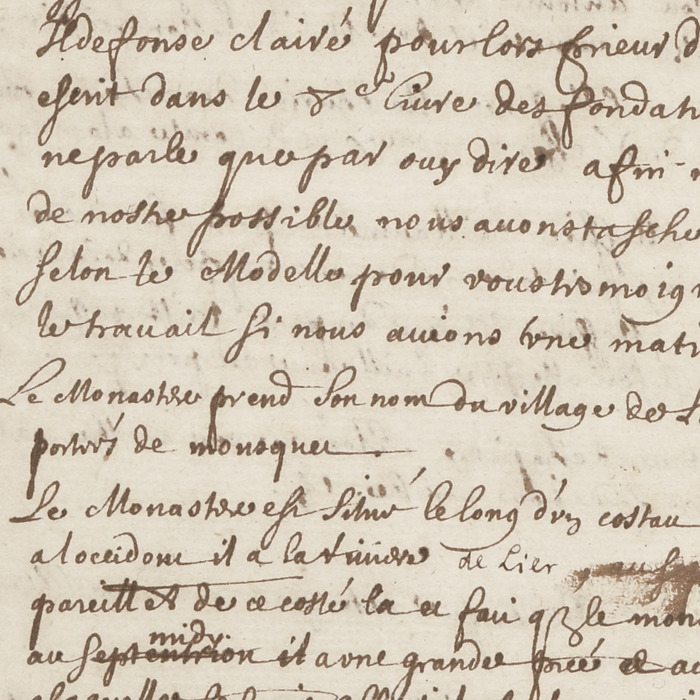 Ildefonse clairé pour lors prieur d
escrit dans le 7e Liure des fondati
ne parle que par ouy dire afin
de nostre possible nous auons tasché
selon le Modelle pour vous tesmoig
le trauail si nous auions vne mati
Le Monastere prend son nom du village de
portés de monosquer
Le Monastere est situé le long d'vn costau
a loccident il a la riuiere de Lier
pareillet de ce costé la et fait q le mon
midy
au septentrion it a vne grande préé et